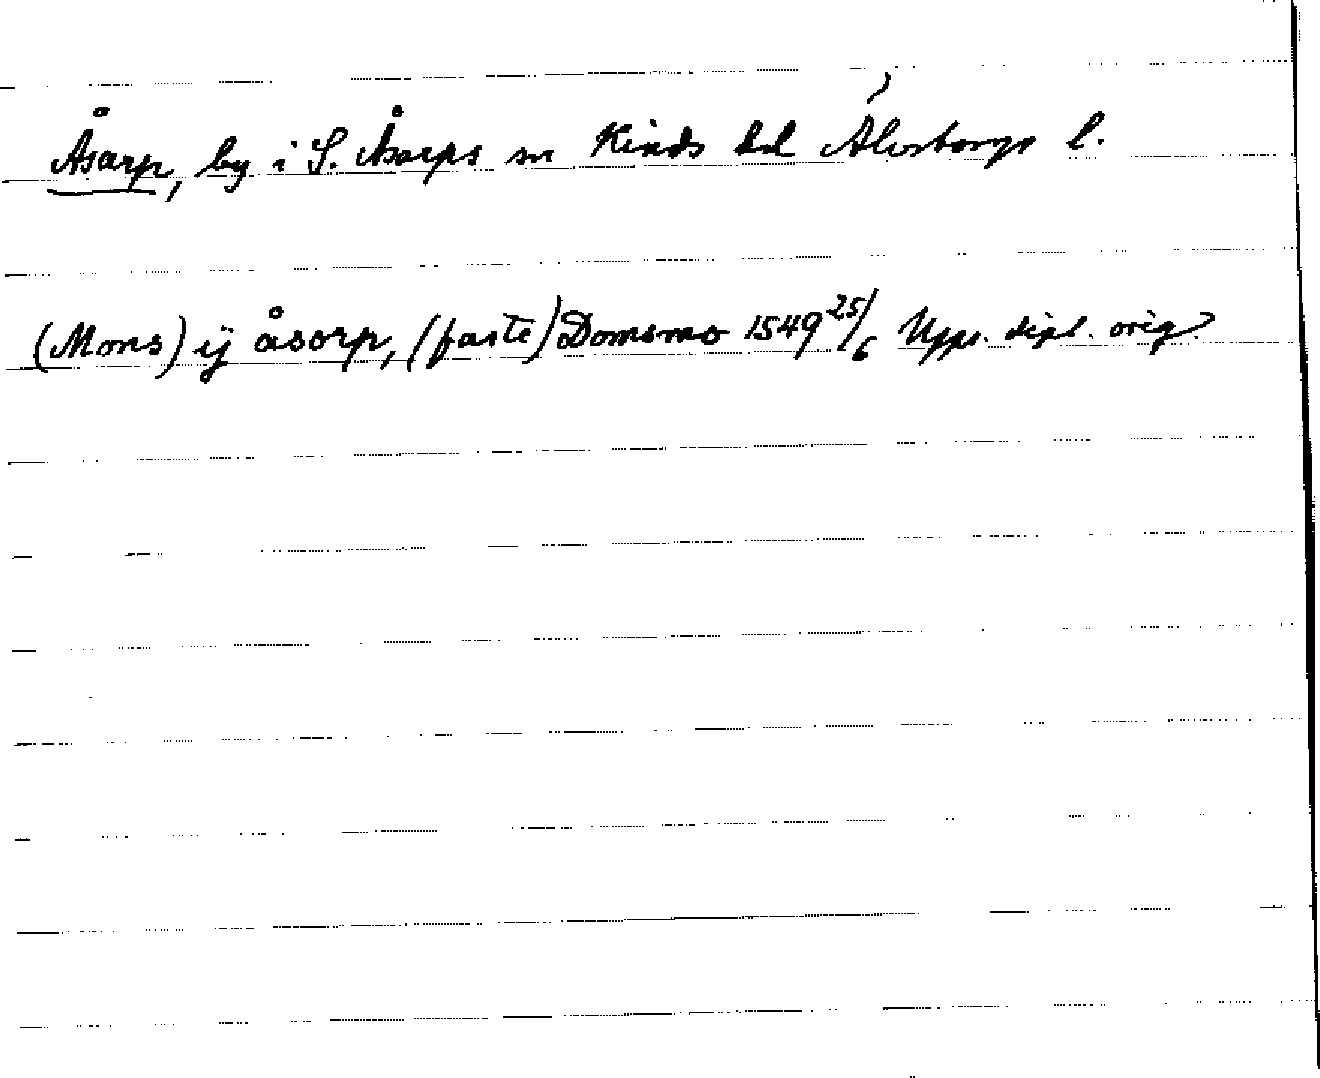 Åsarp, by i S. Åsarps sn Kinds hd Älvsborgs l.
(Mons) ÿ åsorp, (faste) Domsmo 1549 25/6 Upps. dipl. orig.